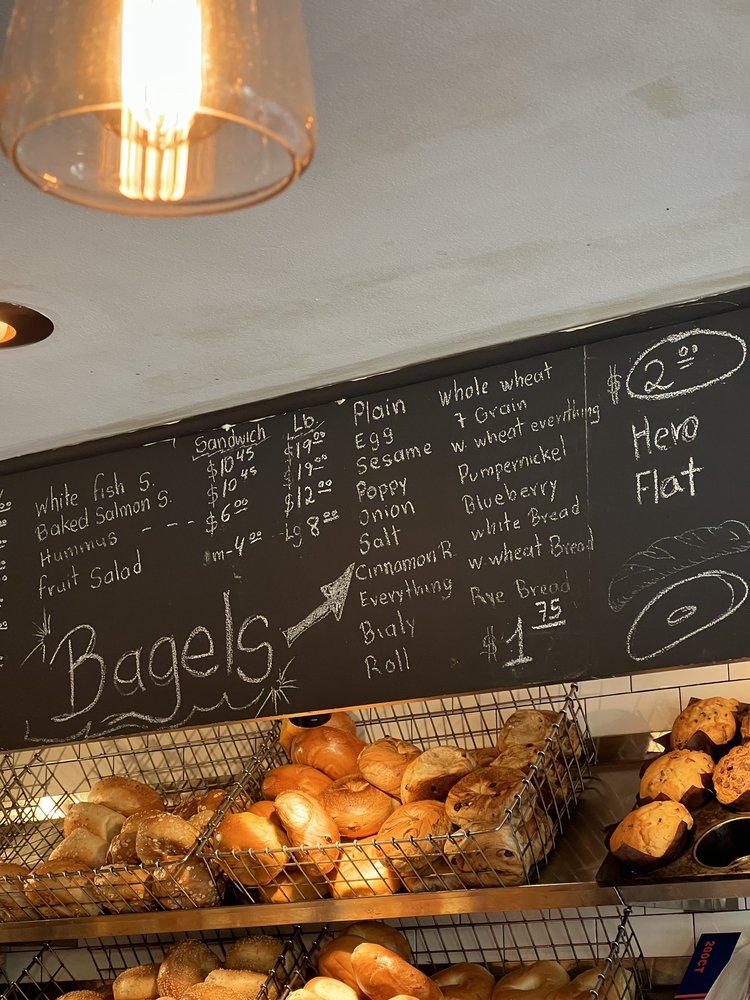 Sandwich Lb
white fish S. $10 45 $19 00
Baked Salmon S. $10 45 $19 00
Hummus - - - - $6 00 $12 00
fruit Salad m-4 00 Lg 8 00
Bagels
Plain
Egg
Sesame
Poppy
Onion
Salt
Cinnamon R.
Everything
Bialy
Roll
whole wheat
7 Grain
w. wheat everything
Pumpernickel
Blueberry
white Bread
w. wheat Bread
Rye Bread
$1 75
$2 00
Hero
Flat
200CT